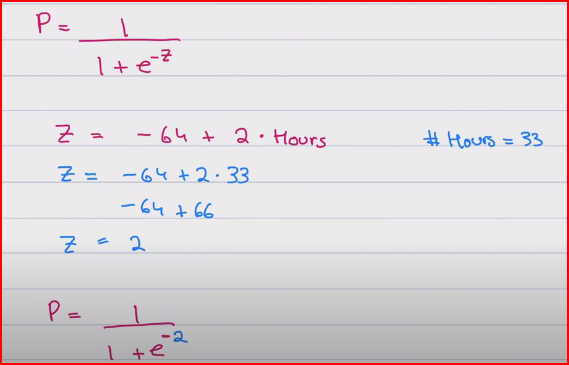 P = 1
1 + e^-z
Z = -64 + 2 · Hours # Hours = 33
Z = -64 + 2 · 33
-64 + 66
Z = 2
P = 1
1 + e^-2